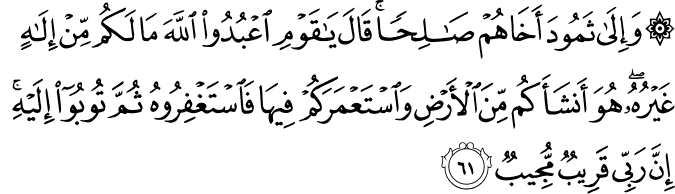 ۞ وَإِلَىٰ ثَمُودَ أَخَاهُمْ صَـٰلِحًا ۚ قَالَ يَـٰقَوْمِ ٱعْبُدُوا۟ ٱللَّهَ مَا لَكُم مِّنْ إِلَـٰهٍ
غَيْرُهُۥ ۖ هُوَ أَنشَأَكُم مِّنَ ٱلْأَرْضِ وَٱسْتَعْمَرَكُمْ فِيهَا فَٱسْتَغْفِرُوهُ ثُمَّ تُوبُوٓا۟ إِلَيْهِ ۚ
إِنَّ رَبِّى قَرِيبٌ مُّجِيبٌ ٦١